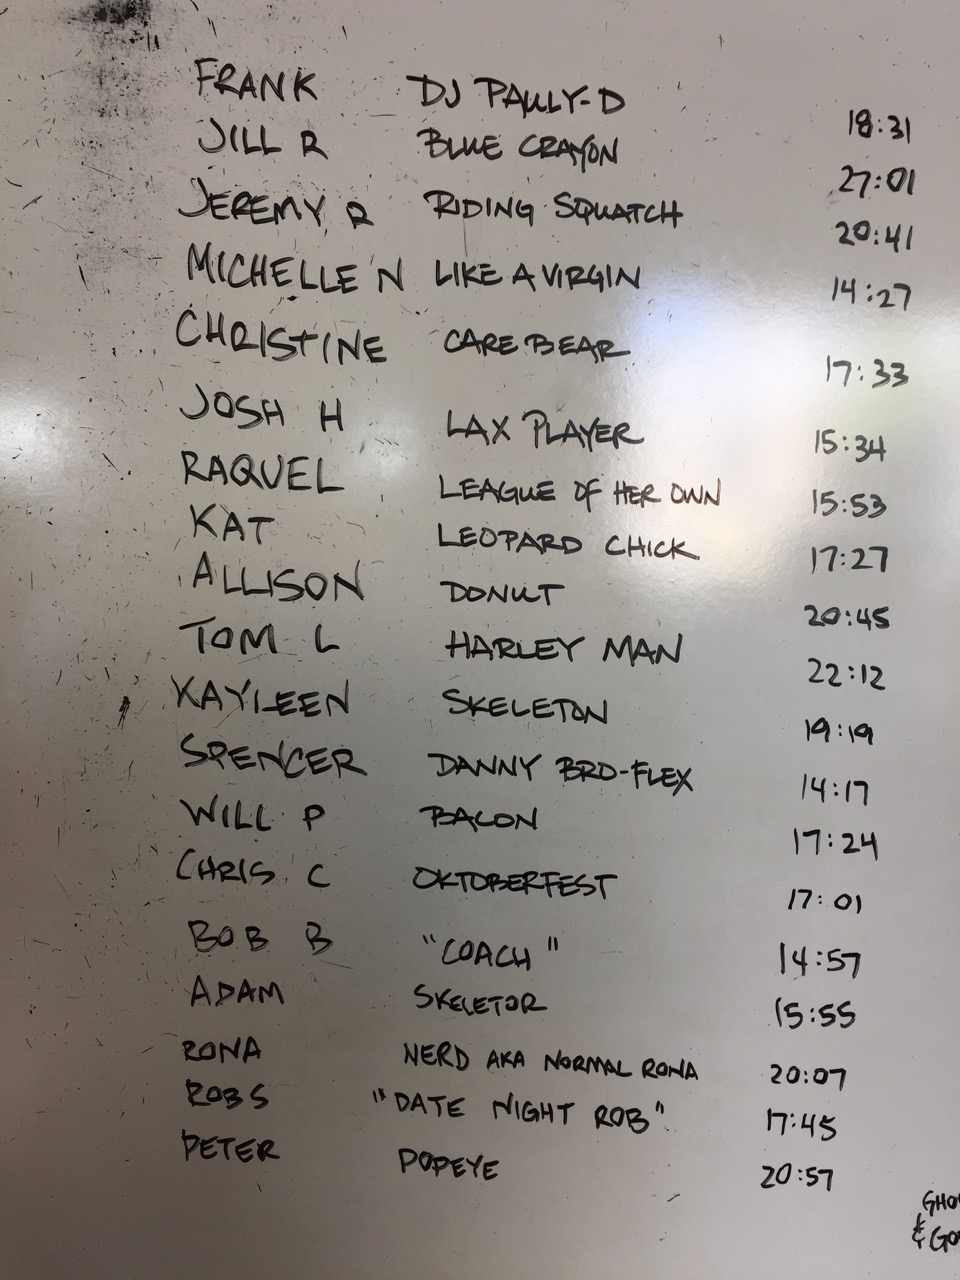 FRANK DJ PAULY-D 18:31
JILL R BLUE CRAYON 27:01
JEREMY R RIDING SQUATCH 20:41
MICHELLE N LIKE A VIRGIN 14:27
CHRISTINE CARE BEAR 17:33
JOSH H LAX PLAYER 15:34
RAQUEL LEAGUE OF HER OWN 15:53
KAT LEOPARD CHICK 17:27
ALLISON DONUT 20:45
TOM L HARLEY MAN 22:12
KAYLEEN SKELETON 19:19
SPENCER DANNY BRO-FLEX 14:17
WILL P BACON 17:24
CHRIS C OKTOBERFEST 17:01
BOB B "COACH" 14:57
ADAM SKELETOR 15:55
RONA NERD AKA NORMAL RONA 20:07
ROB S "DATE NIGHT ROB" 17:45
PETER POPEYE 20:57
&